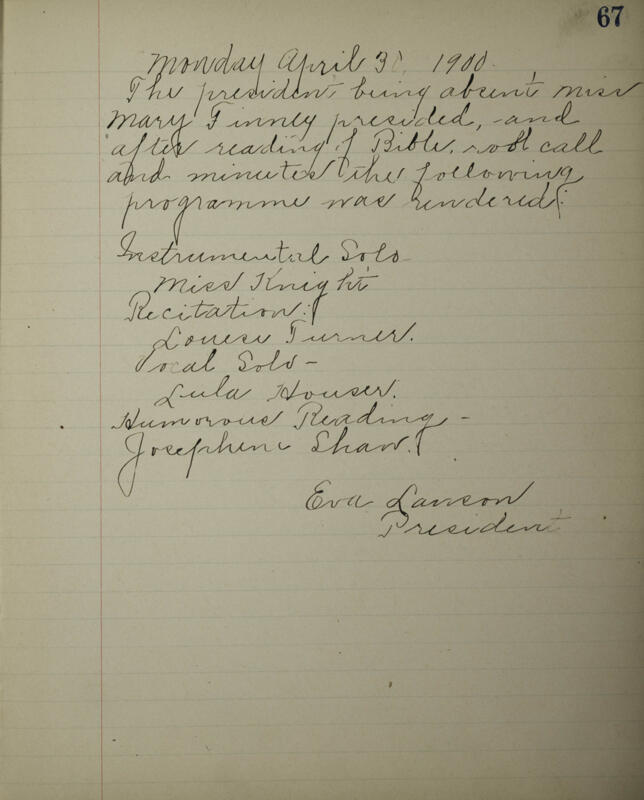 67
Monday April 30, 1900.
The president being absent miss
Mary Finney presided, and
after reading of Bible, roll call
and minutes the following
programme was rendered:
Instrumental Solo
Miss Knight
Recitation:
Louese Turner.
Vocal Solo -
Lula Houser.
Humorous Reading -
Josephine Shaw.
Eva Lawson
President